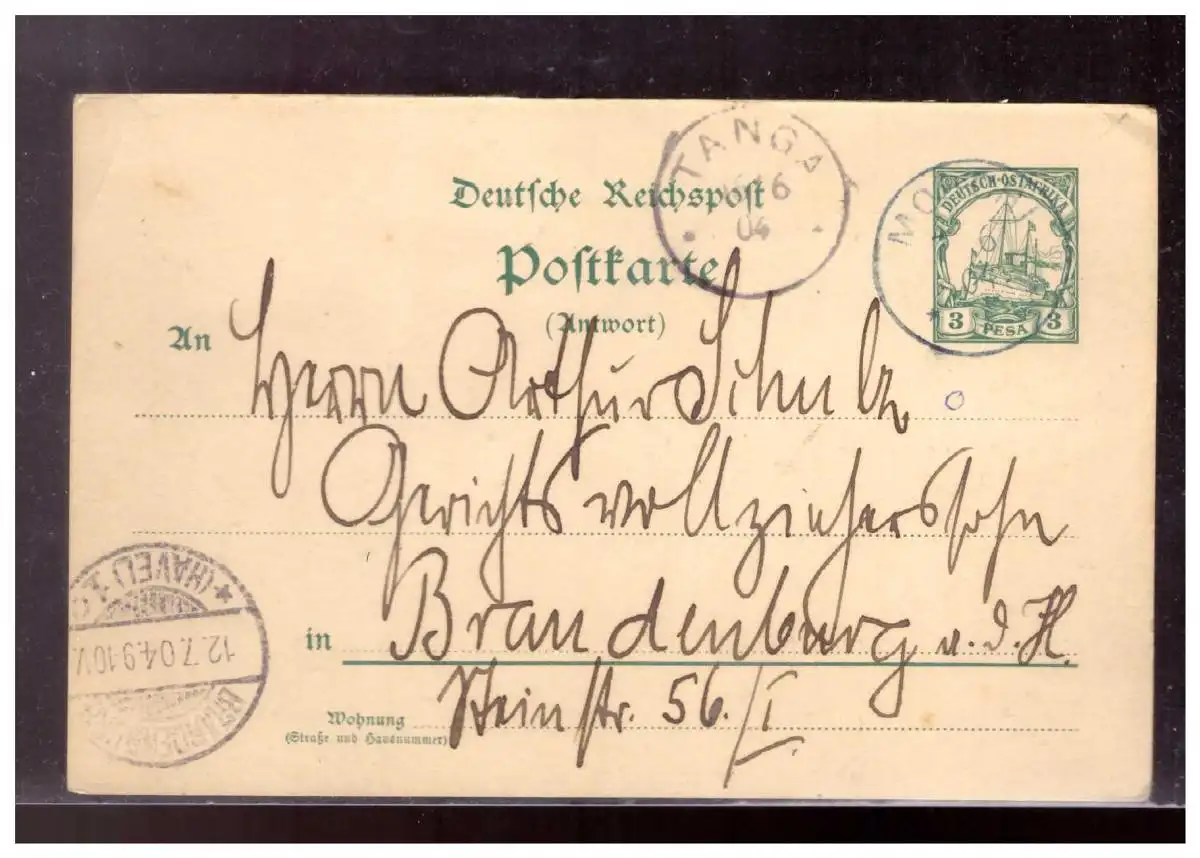 TANGA
6
04
Deutsche Reichspost
Postkarte
(Antwort)
DEUTSCH-OSTAFRIKA
3 PESA 3
MO
An Herrn Arthur Schulz
Gerichtsvollzieherssohn
in Brandenburg a. d. H.
Wohnung Steinstr. 56./I.
(Straße und Hausnummer)
(HAVEL) 1
12.7.04.9-10V.